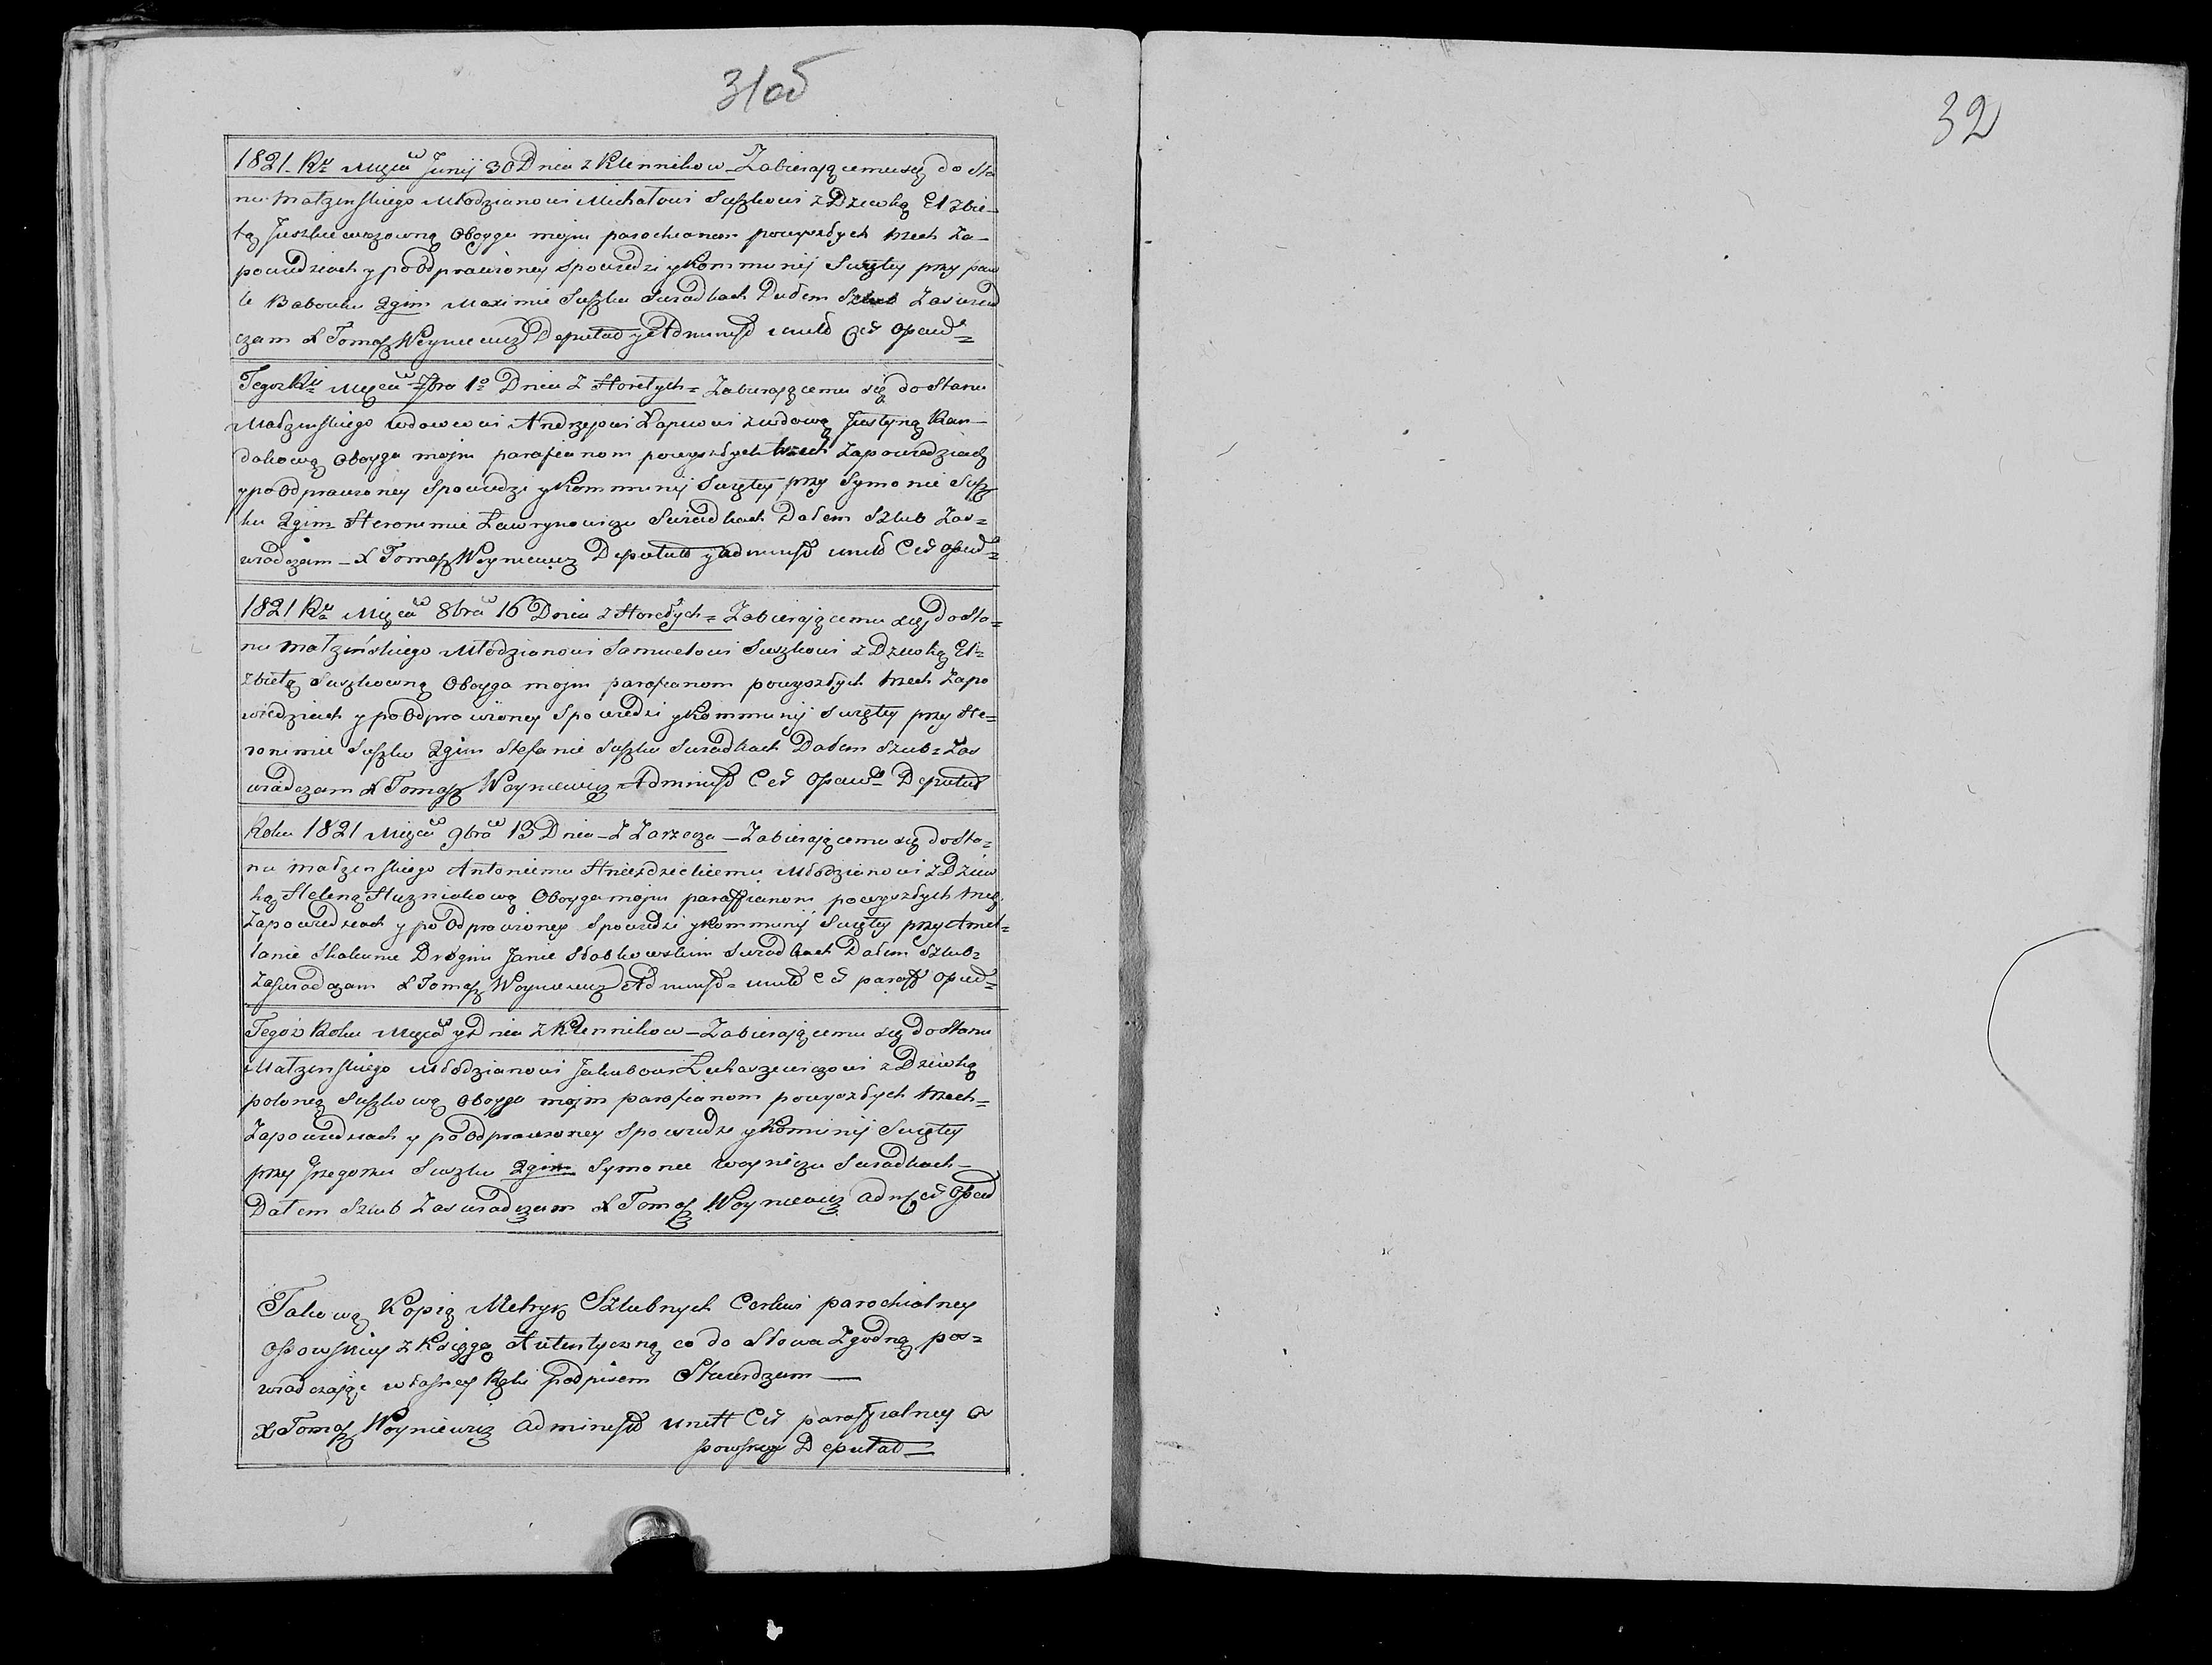 31об
32
1821. Rᵘ Miҫcᵃ Junij 30 Dnia z Klennikow – Zabierającemu się do Sta
nu Małżenskiego Młodzianowi Michałowi Suszkowi z Dziewką Elzbie–
tą Juszkiewiczowną Oboyga moim parochianom powyszłych trzech Za–
powiedziach y po Odprawioney spowiedzi y Kommunij Swiętey przy paw
le Babouku 2gim Maximie Suszku Swiadkach Dałem Szlub Zaswiad
czam X Tomasz Woyniewicz Deputat y Administ unick Cer Opow
Tegoz Rᵘ Mięca 7bra 1° Dnia z Horełych = Zabierającemu się do Stanu
Małzenskiego wdowcowi Andrzejowi Łapiwoi z wdową Justyną Kan–
dakową Oboyga moim parafianom powyszłych trzech Zapowiedziach
y po Odprawioney Spowiedzi y Kommunij Swiętey przy Symonie Susz
ku 2gim Heronimie Ławrynowiczu Swiadkach Dałem Szlub Zas=
wiadczam – X Tomasz Woyniewicz Deputat y Administ unick Cer Opow
1821 Rᵘ Mięca 8bra 16 Dnia z Horełych = Zabierającemu się do Sta=
nu Małzeńskiego Młodzianowi Samuelowi Suszkowi z Dziewką El=
zbietą Suszkowną Oboyga moim parafianom powyszłych trzech Zapo
wiedziach y po Odprawioney Spowiedzi y Kommunij Swiętey przy He=
ronimie Suszku 2gim Stefanie Suszku Swiadkach Dałem Szlub = Zas
wiadczam X Tomasz Woyniewicz Administ Cer Opow Deputat
Roku 1821 Mięca 9bra 13 Dnia – Z Zarzecza – Zabierającemu się do Sta=
nu małzenskiego Antoniemu Hniezdzickiemu Młodzianowi z Dziew
ką Heleną Huzniakową Oboyga moim paraffianom powyszłych trzech
Zapowiedziach y po Odprawioney Spowiedzi y Kommunij Swiętey przy Amel=
ianie Drugim Janie Słabkowskim Swiadkach Dałem Szlub=
Zaswiadczam X Tomasz Woyniewicz Administ = unick Cer paraff Opow=
Tegoż Roku Mięca y Dnia z Klennikow – Zabierającemu się do Stanu
Małzenskiego Młodzianowi Jakubowi Łukaszewiczowi z Dziewką
polonią Suszkową Oboyga moim parafianom powyszłych trzech=
Zapowiedziach y po Odprawioney Spowiedzi y Komunij Swiętey
przy Grzegorzu Suszku 2gim Symonie Woyniczu Swiadkach–
Dałem Szlub Zaswiadczam X Tomasz Woyniewicz Adm Cer Opow
Takową Kopią Metryk Szlubnych Cerkwi parochialney
Opowskiey z Księgą Autentyczną co do Słowa Zgodną pos=
wiadczając własney Ręki podpisem Stwierdzam —
X Tomasz Woyniewicz Administ unitt Cer paraffialney O
powskiey Deputat =